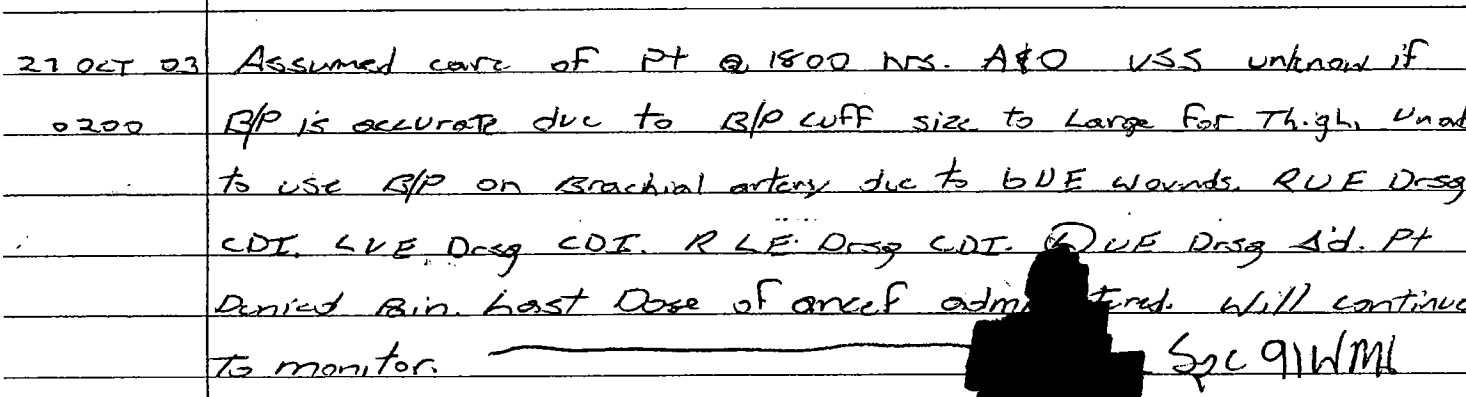 27 OCT 03 Assumed care of Pt @ 1800 hrs. A&O VSS unknow if
0200 B/P is accurate due to B/P cuff size to Large for Thigh. Unab
to use B/P on Brachial artery due to bUE wounds. RUE Drsg
CDI. LUE Drsg CDI. RLE Drsg CDI. Ⓛ UE Drsg Δ'd. Pt
Denied Pain. Last Dose of ancef adm tered. Will continue
To monitor. Spc 91WM6